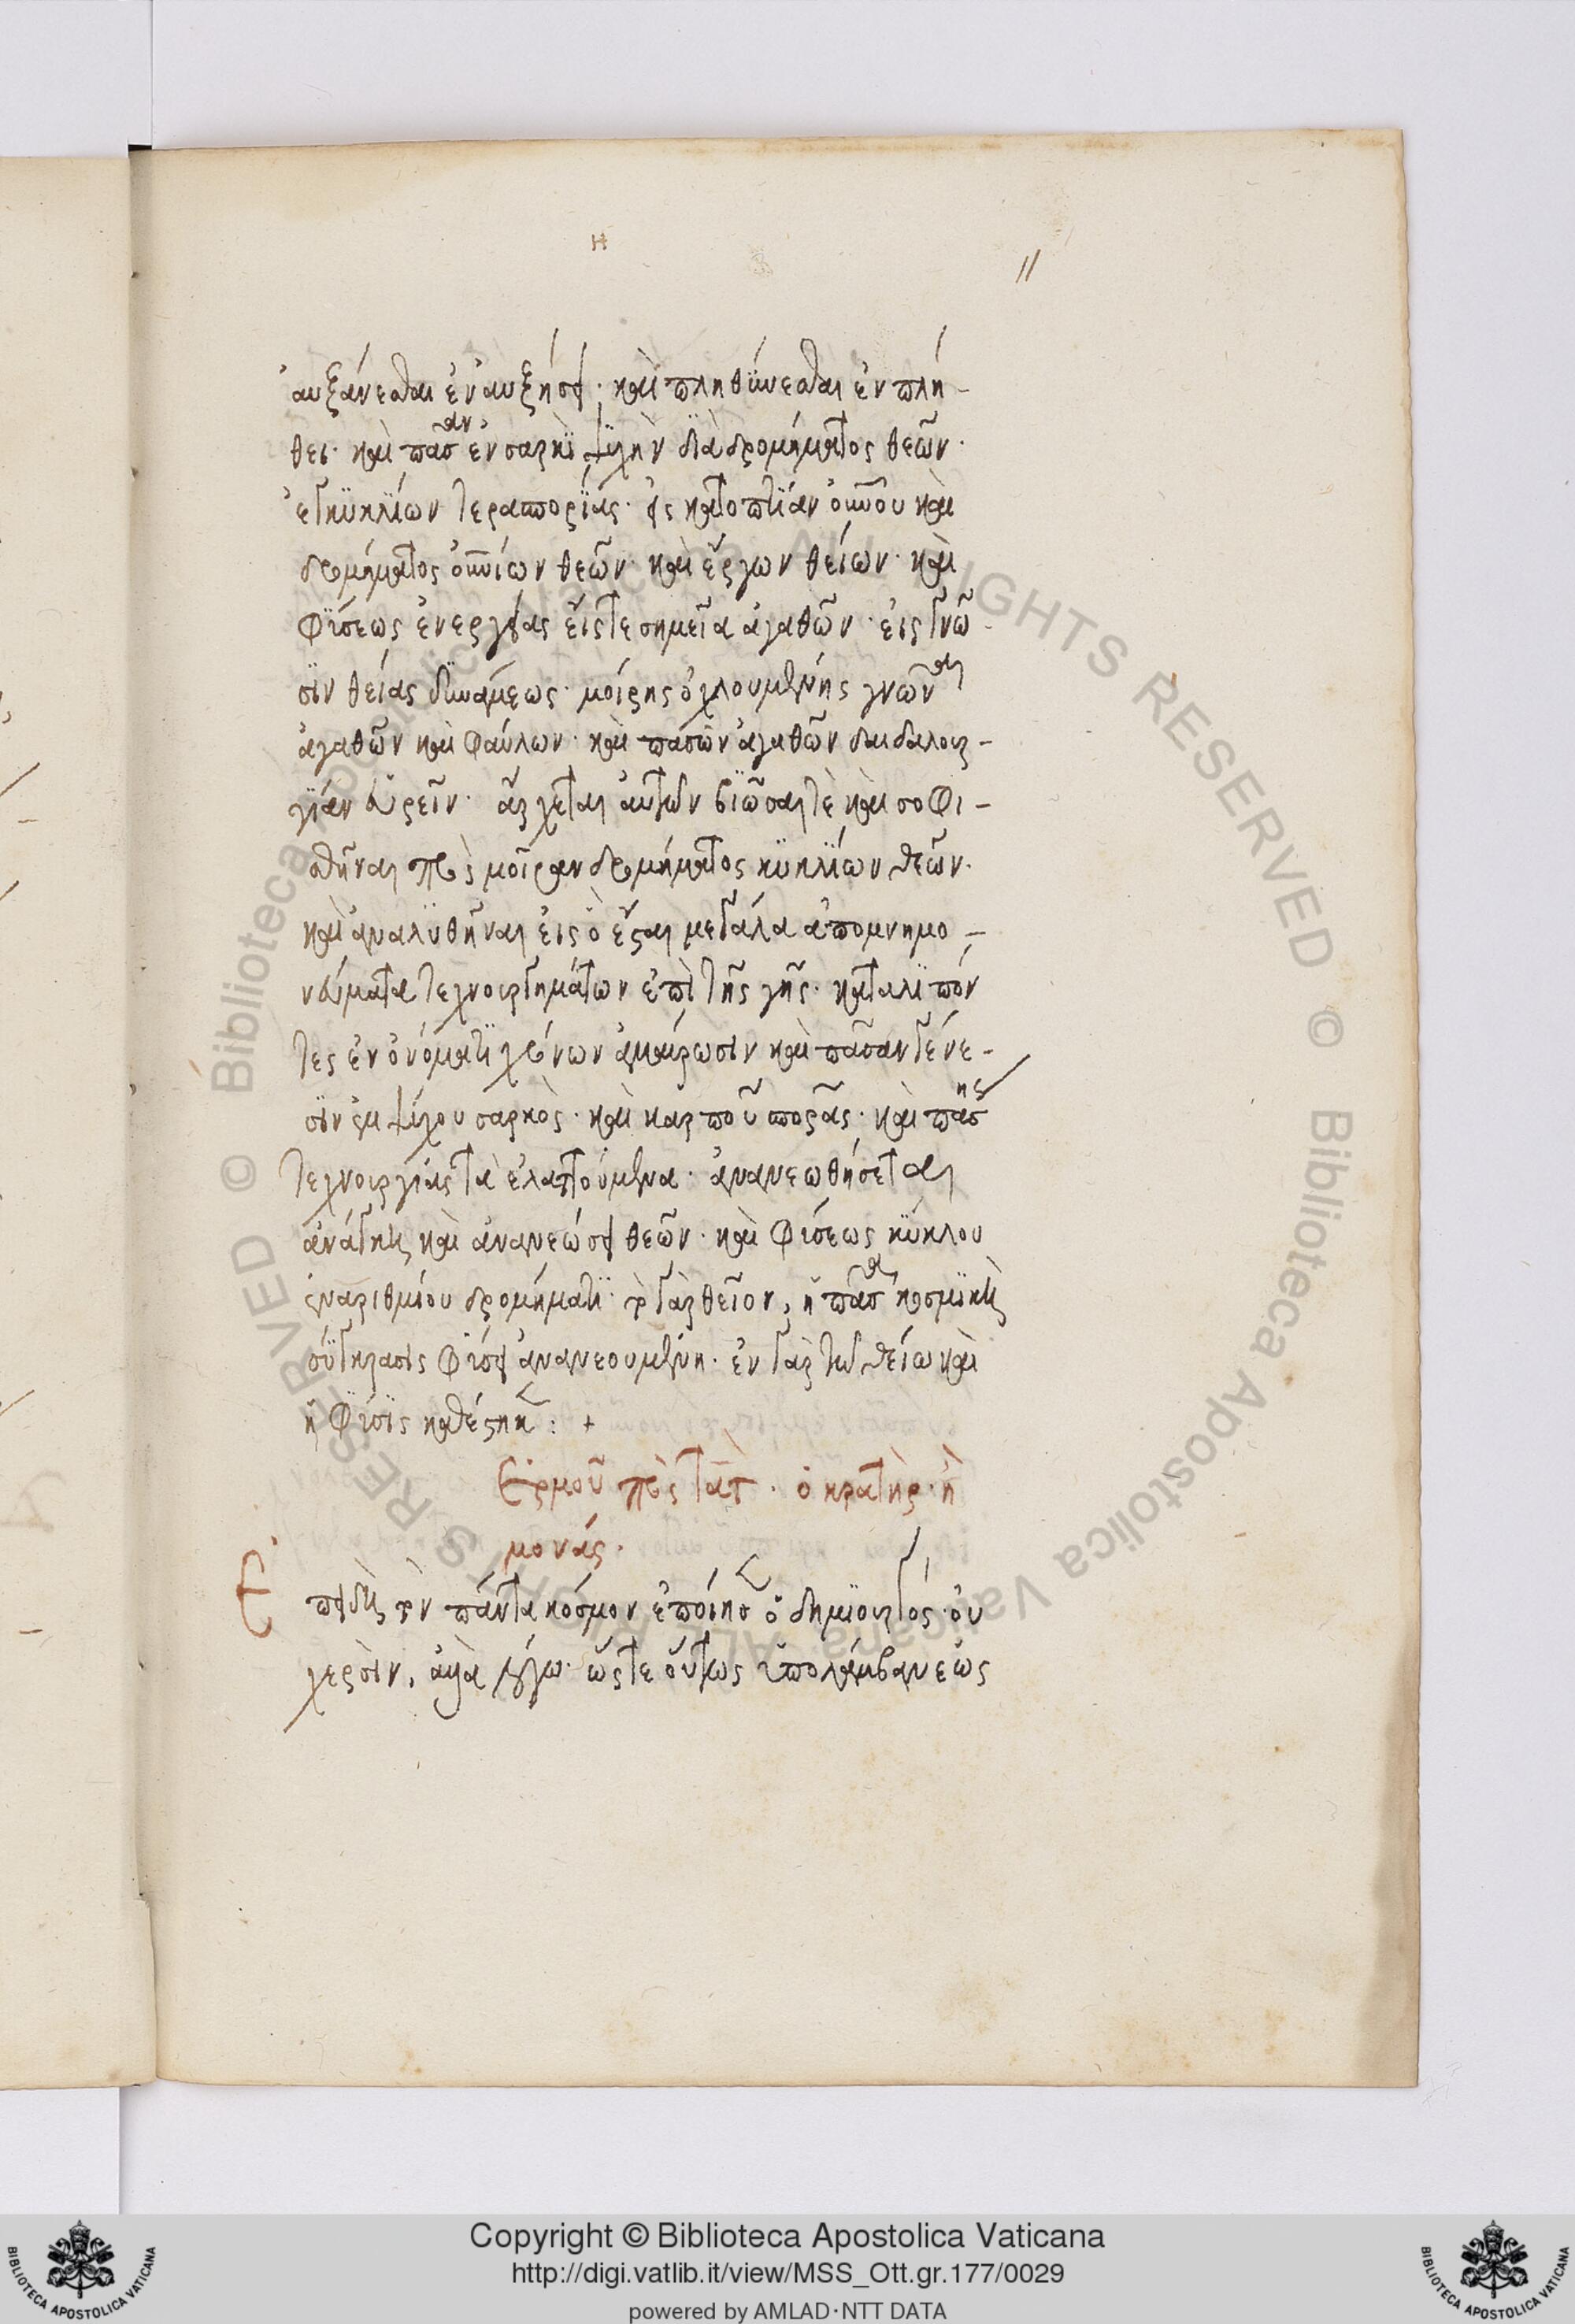 η
11
αὐξάνεσθαι ἐν αὐξήσει· καὶ πληθύνεσθαι ἐν πλή-
θει· καὶ πᾶσαν ἐν σαρκὶ ψυχὴν διὰ δρομήματος θεῶν
ἐγκυκλίων τεραπορίας· εἰς κατοπτίαν οὐνοῦ καὶ
δρομήματος οὐνίων θεῶν· καὶ ἔργων θείων· καὶ
φύσεως ἐνεργείας εἴς τε σημεῖα ἀγαθῶν· εἰς γνῶ
σιν θείας δυνάμεως· μοίρης ὀχλουμένης γνῶναι
ἀγαθῶν καὶ φαύλων· καὶ πᾶσων ἀγαθῶν δαιδαλουρ-
γίαν εὑρεῖν· ἄρχεται αὐτῶν βιῶσαι τὲ καὶ σοφι-
σθῆναι πρὸς μοῖραν δρομήματος κυκλίων θεῶν·
καὶ ἀναλυθῆναι εἰς ὃ ἔσται μεγάλα ἀπομνημο-
νεύματα τεχνουργημάτων ἐπὶ τῆς γῆς· καταλιπόν
τες ἐν ὀνόματι χρόνων ἀμαύρωσιν καὶ πᾶσαν γένε-
σιν ἐμψύχου σαρκὸς· καὶ καρποῦ σπορᾶς· καὶ πάσης
τεχνουργίας τὰ ἐλαττούμενα· ἀνανεωθήσεται
ἀνάγκη καὶ ἀνανεώσει θεῶν· καὶ φύσεως κύκλου
ἐναριθμίου δρομήματι· τὸ γὰρ θεῖον, ἡ πᾶσα κοσμικὴ
σύγκρασις φύσει ἀνανεουμένη· ἐν γὰρ τῷ θείῳ καὶ
ἡ φύσις καθέστηκεν: +
Ἑρμοῦ πρὸς τὰτ· ὁ κρατὴρ· ἢ
μονάς·
Ἐ
πειδὴ τὸν πάντα κόσμον ἐποίησεν ὁ δημιουργός· οὐ
χερσὶν, ἀλλὰ λόγῳ· ὥστε οὕτως ὑπολάμβανε ὡς
Copyright © Biblioteca Apostolica Vaticana
http://digi.vatlib.it/view/MSS_Ott.gr.177/0029
powered by AMLAD·NTT DATA
BIBLIOTECA APOSTOLICA VATICANA
BIBLIOTECA APOSTOLICA VATICANA